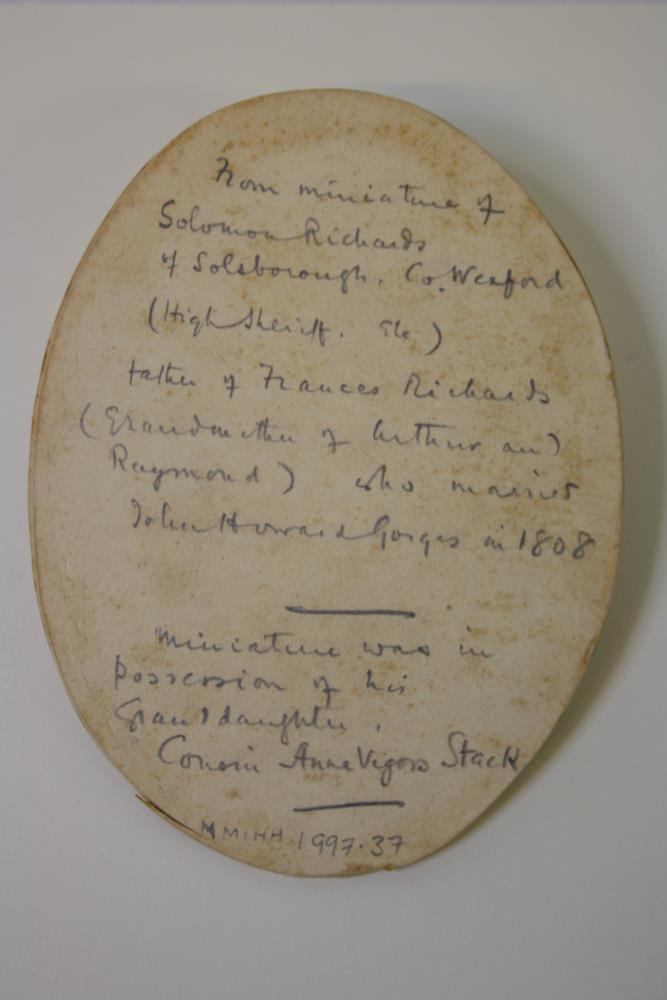 From miniature of
Solomon Richards
of Solsborough. Co. Wexford
(High Sheriff. Etc)
father of Frances Richards
(Grandmother of Arthur and
Raymond) who married
John Howard Gorges in 1808
Miniature was in
possession of his
Granddaughter,
Cousin Anne Vigors Stack
MMIHH 1997.37